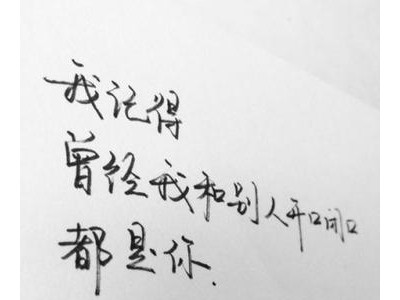 我记得
曾经我和别人开口闭口
都是你.